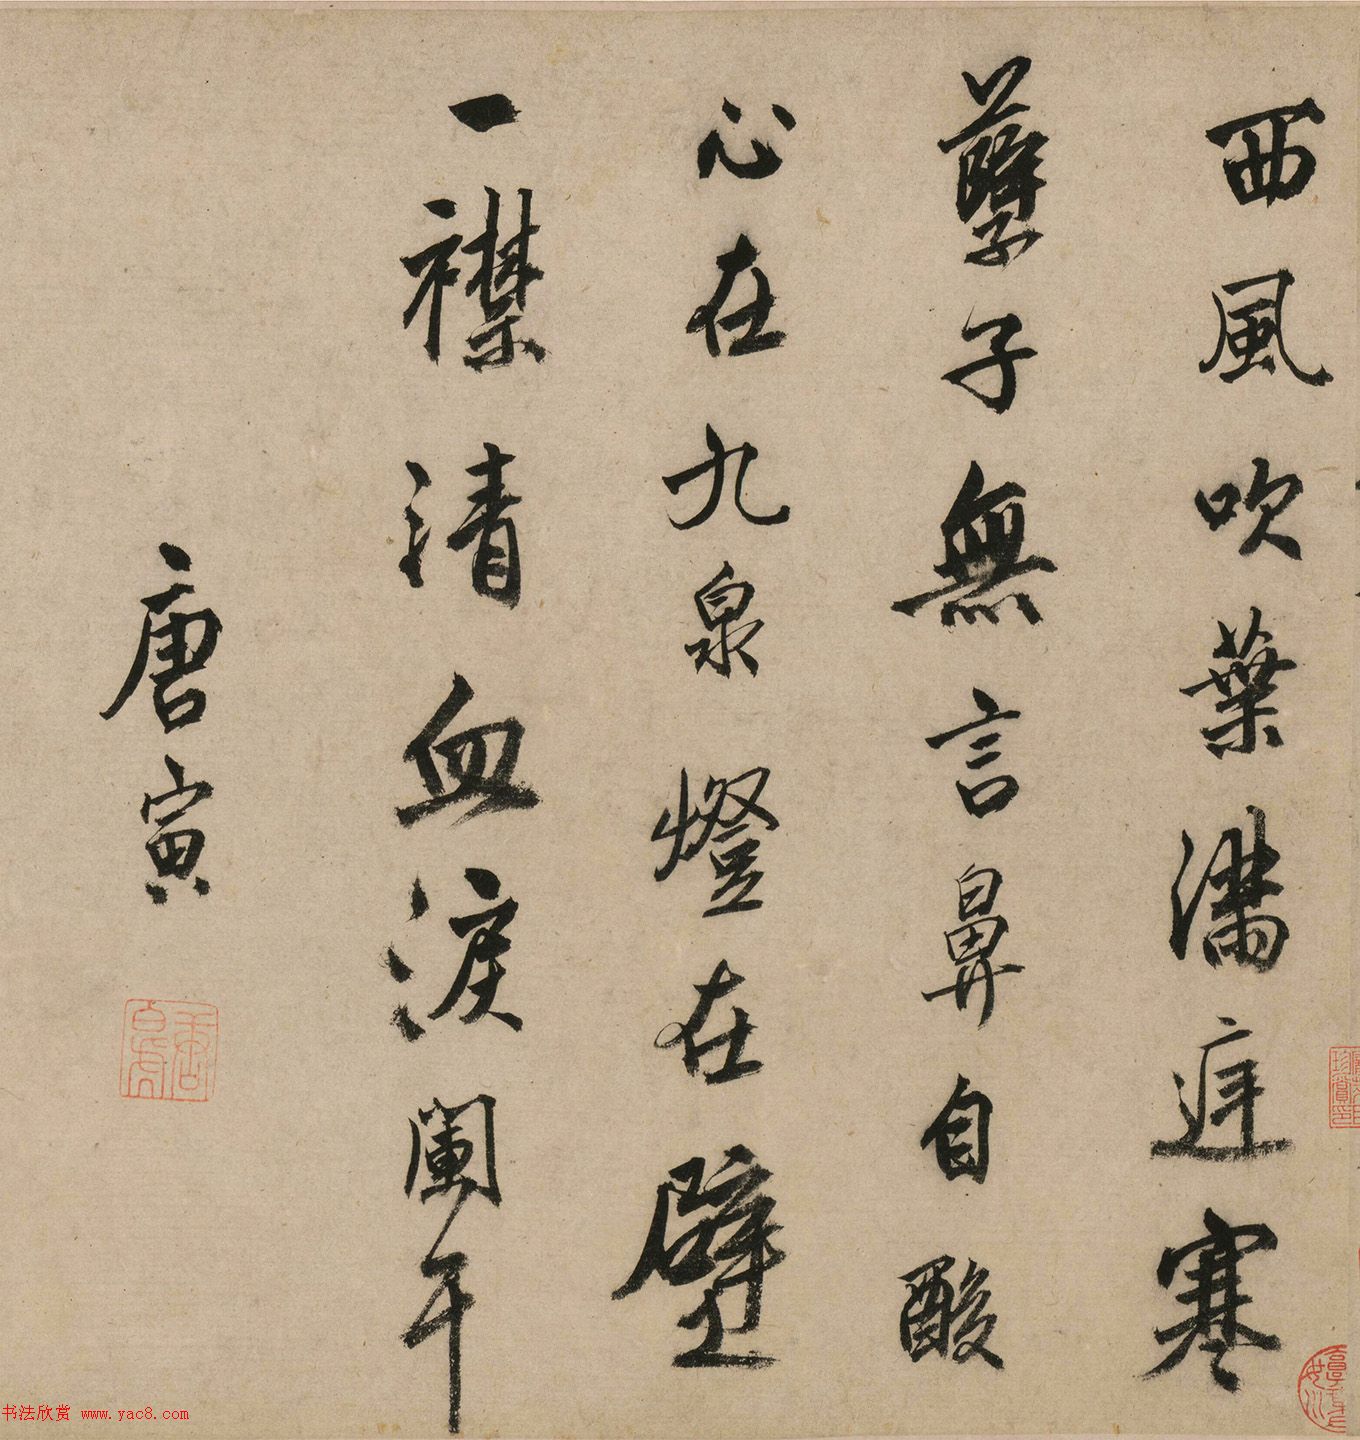 西風吹葉滿庭寒
孽子無言鼻自酸
心在九泉燈在壁
一襟清血淚闌干
唐寅
唐白虎
书法欣赏 www.yac8.com